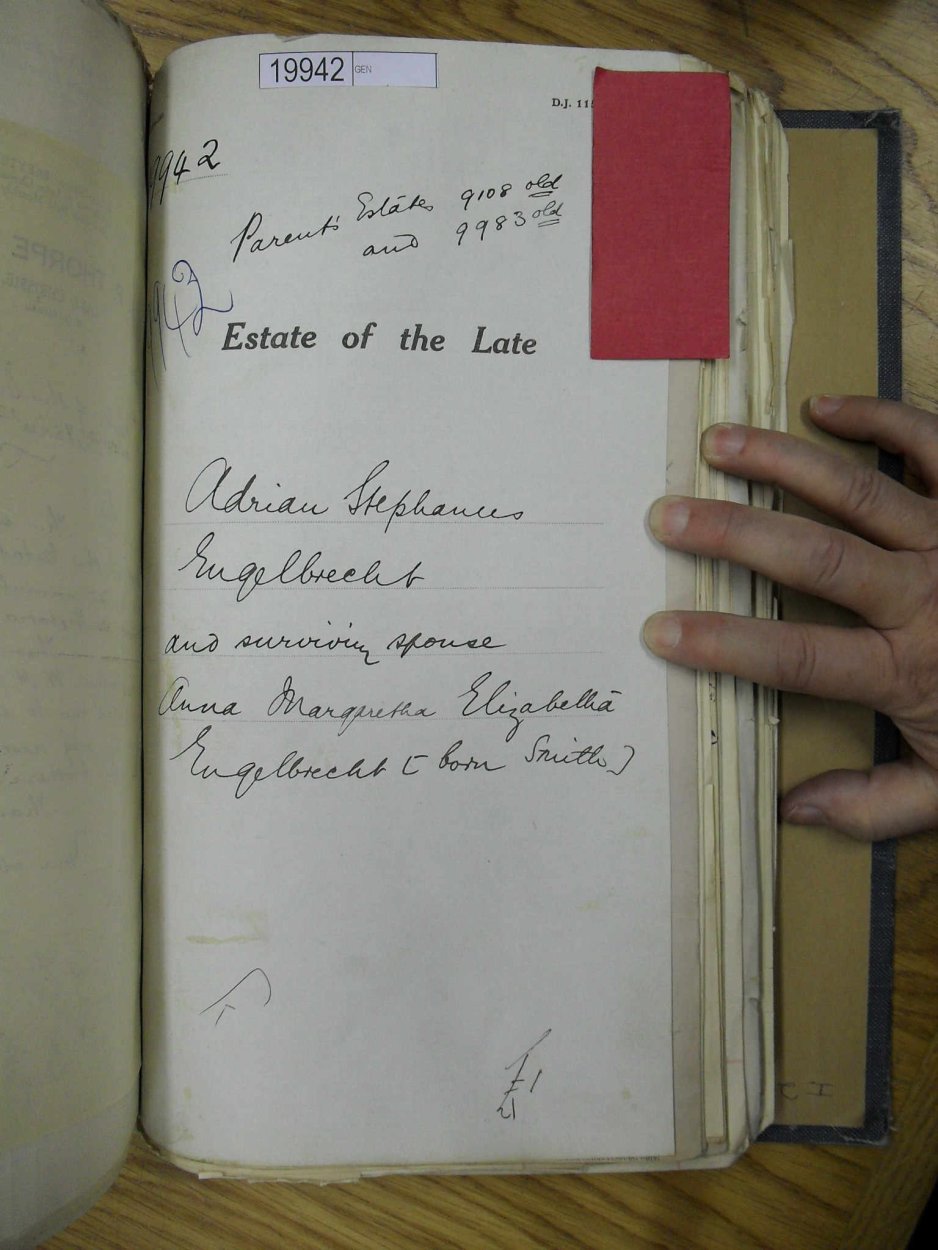 19942 GEN
D.J. 11
9942
Parent's Estates 9108 old
and 9983 old
942
Estate of the Late
Adrian Stephanus
Engelbrecht
and surviving spouse
Anna Margaretha Elizabetha
Engelbrecht [born Smith]